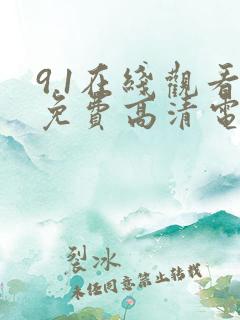 9.1在綫觀看
免費高清電
裂冰
未经同意禁止转载